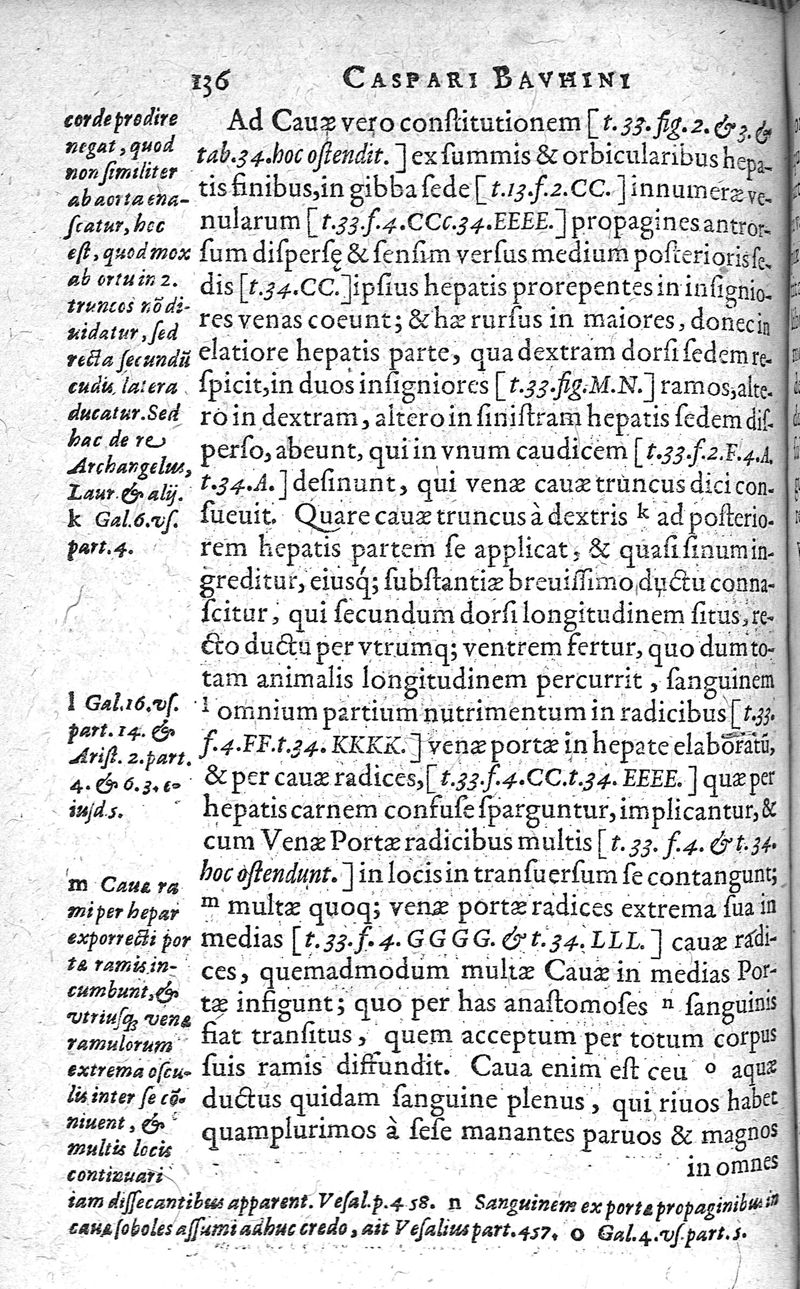 136 CASPARI BAVHINI
corde prodire
negat, quod
non similiter
ab aorta ena-
scatur, hoc
est, quod mox
ab ortu in 2.
truncos nõ di-
uidatur, sed
recta secundũ
eudũ latera
ducatur. Sed
hac de re
Archangelus,
Laur. & alij.
k Gal. 6. vs.
part. 4.
l Gal. 16. vs.
part. 14. &
Arist. 2. part.
4. & 6. 3. e-
iusd 5.
m Cauæ ra
mi per hepar
exporrecti por
tæ ramis in-
cumbunt, &
vtriusq; venæ
ramulorum
extrema oscu-
lis inter se cō-
niuent, &
multis locis
continuari
Ad Cauæ vero constitutionem [t. 33. fig. 2. & 3. &
tab. 34. hoc ostendit.] ex summis & orbicularibus hepa-
tis finibus, in gibba sede [t. 13. f. 2. CC.] innumeræ ve-
nularum [t. 33. f. 4. CCc. 34. EEEE.] propagines antror-
sum dispersę & sensim versus medium posterioris se-
dis [t. 34. CC.] ipsius hepatis prorepentes in insignio-
res venas coeunt; & hæ rursus in maiores, donec in
elatiore hepatis parte, qua dextram dorsi sedem re-
spicit, in duos insigniores [t. 33. fig. M. N.] ramos, alte-
ro in dextram, altero in sinistram hepatis sedem dis-
perso, abeunt, qui in vnum caudicem [t. 33. f. 2. F. 4. A.
t. 34. A.] desinunt, qui venæ cauæ truncus dici con-
sueuit. Quare cauæ truncus à dextris k ad posterio-
rem hepatis partem se applicat, & quasi sinum in-
greditur, eiusq́; substantiæ breuissimo ductu conna-
scitur, qui secundum dorsi longitudinem situs, re-
cto ductu per vtrumq; ventrem fertur, quo dum to-
tam animalis longitudinem percurrit, sanguinem
l omnium partium nutrimentum in radicibus [t. 33.
f. 4. FF. t. 34. KKKK.] venæ portæ in hepate elaboratũ,
& per cauæ radices, [t. 33. f. 4. CC. t. 34. EEEE.] quæ per
hepatis carnem confuse sparguntur, implicantur, &
cum Venæ Portæ radicibus multis [t. 33. f. 4. & t. 34.
hoc ostendunt.] in locis in transuersum se contangunt;
m multæ quoq; venæ portæ radices extrema sua in
medias [t. 33. f. 4. GGGG. & t. 34. LLL.] cauæ radi-
ces, quemadmodum multæ Cauæ in medias Por-
tæ infigunt; quo per has anastomoses n sanguinis
fiat transitus, quem acceptum per totum corpus
suis ramis diffundit. Caua enim est ceu o aquæ
ductus quidam sanguine plenus, qui riuos habet
quamplurimos à sese manantes paruos & magnos
in omnes
iam dissecantibus apparent. Vesal. p. 458. n Sanguinem ex portæ propaginibus in
cauæ soboles assumi adhuc credo, ait Vesalius part. 457. o Gal. 4. vs. part. 5.